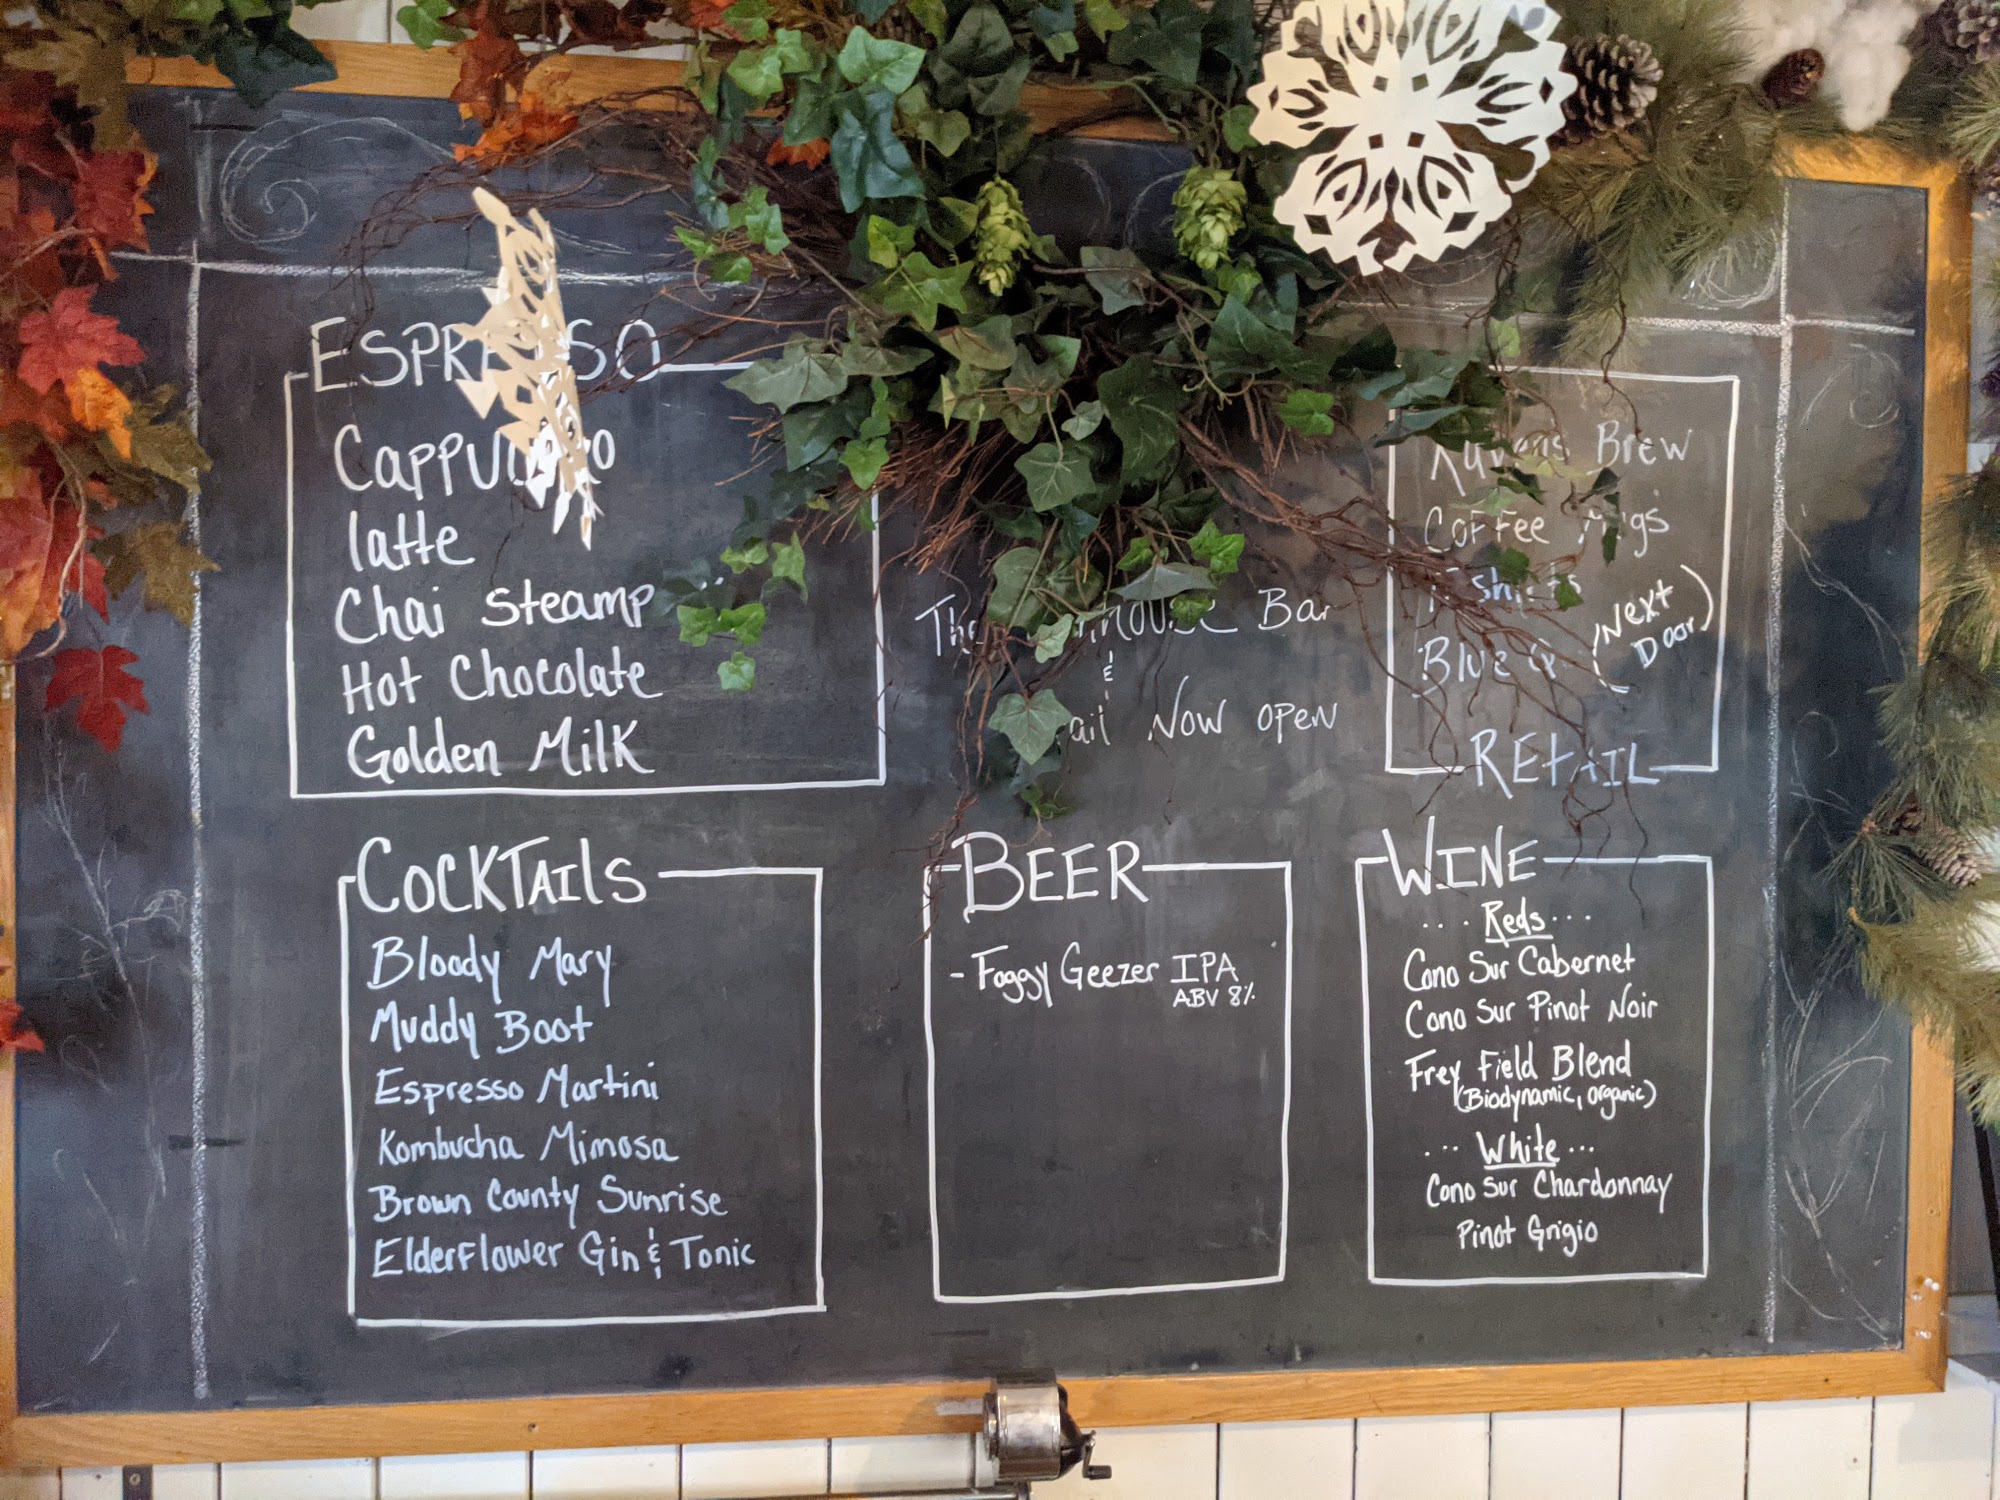 Cappuccino
latte
Chai Steamp
Hot Chocolate
Golden Milk
Bar
&
Now open
Brew
Coffee
Blue
(Next
Door)
RETAIL
COCKTAILS
Bloody Mary
Muddy Boot
Espresso Martini
Kombucha Mimosa
Brown County Sunrise
Elderflower Gin & Tonic
BEER
- Foggy Geezer IPA
ABV 8%
WINE
... Reds ...
Cono Sur Cabernet
Cono Sur Pinot Noir
Frey Field Blend
(Biodynamic, organic)
... White ...
Cono Sur Chardonnay
Pinot Grigio